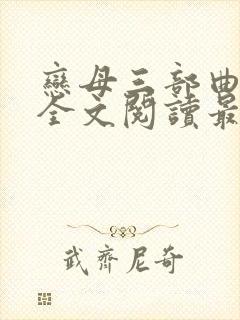 戀母三部曲
全文閱讀最
武齊尼奇